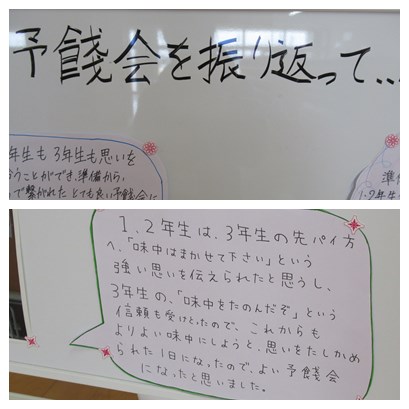 予餞会を振り返って…
年生も3年生も思いを
うことができ、準備から、
で繋がれたとても良い予餞会に
準備
1・2年生
1、2年生は、3年生の先パイ方
へ、「味中はまかせて下さい」という
強い思いを伝えられたと思うし、
3年生の、「味中をたのんだぞ」という
信頼も受けとったので、これからも
よりよい味中にしようと、思いをたしかめ
られた1日になったので、よい予餞会
になったと思いました。